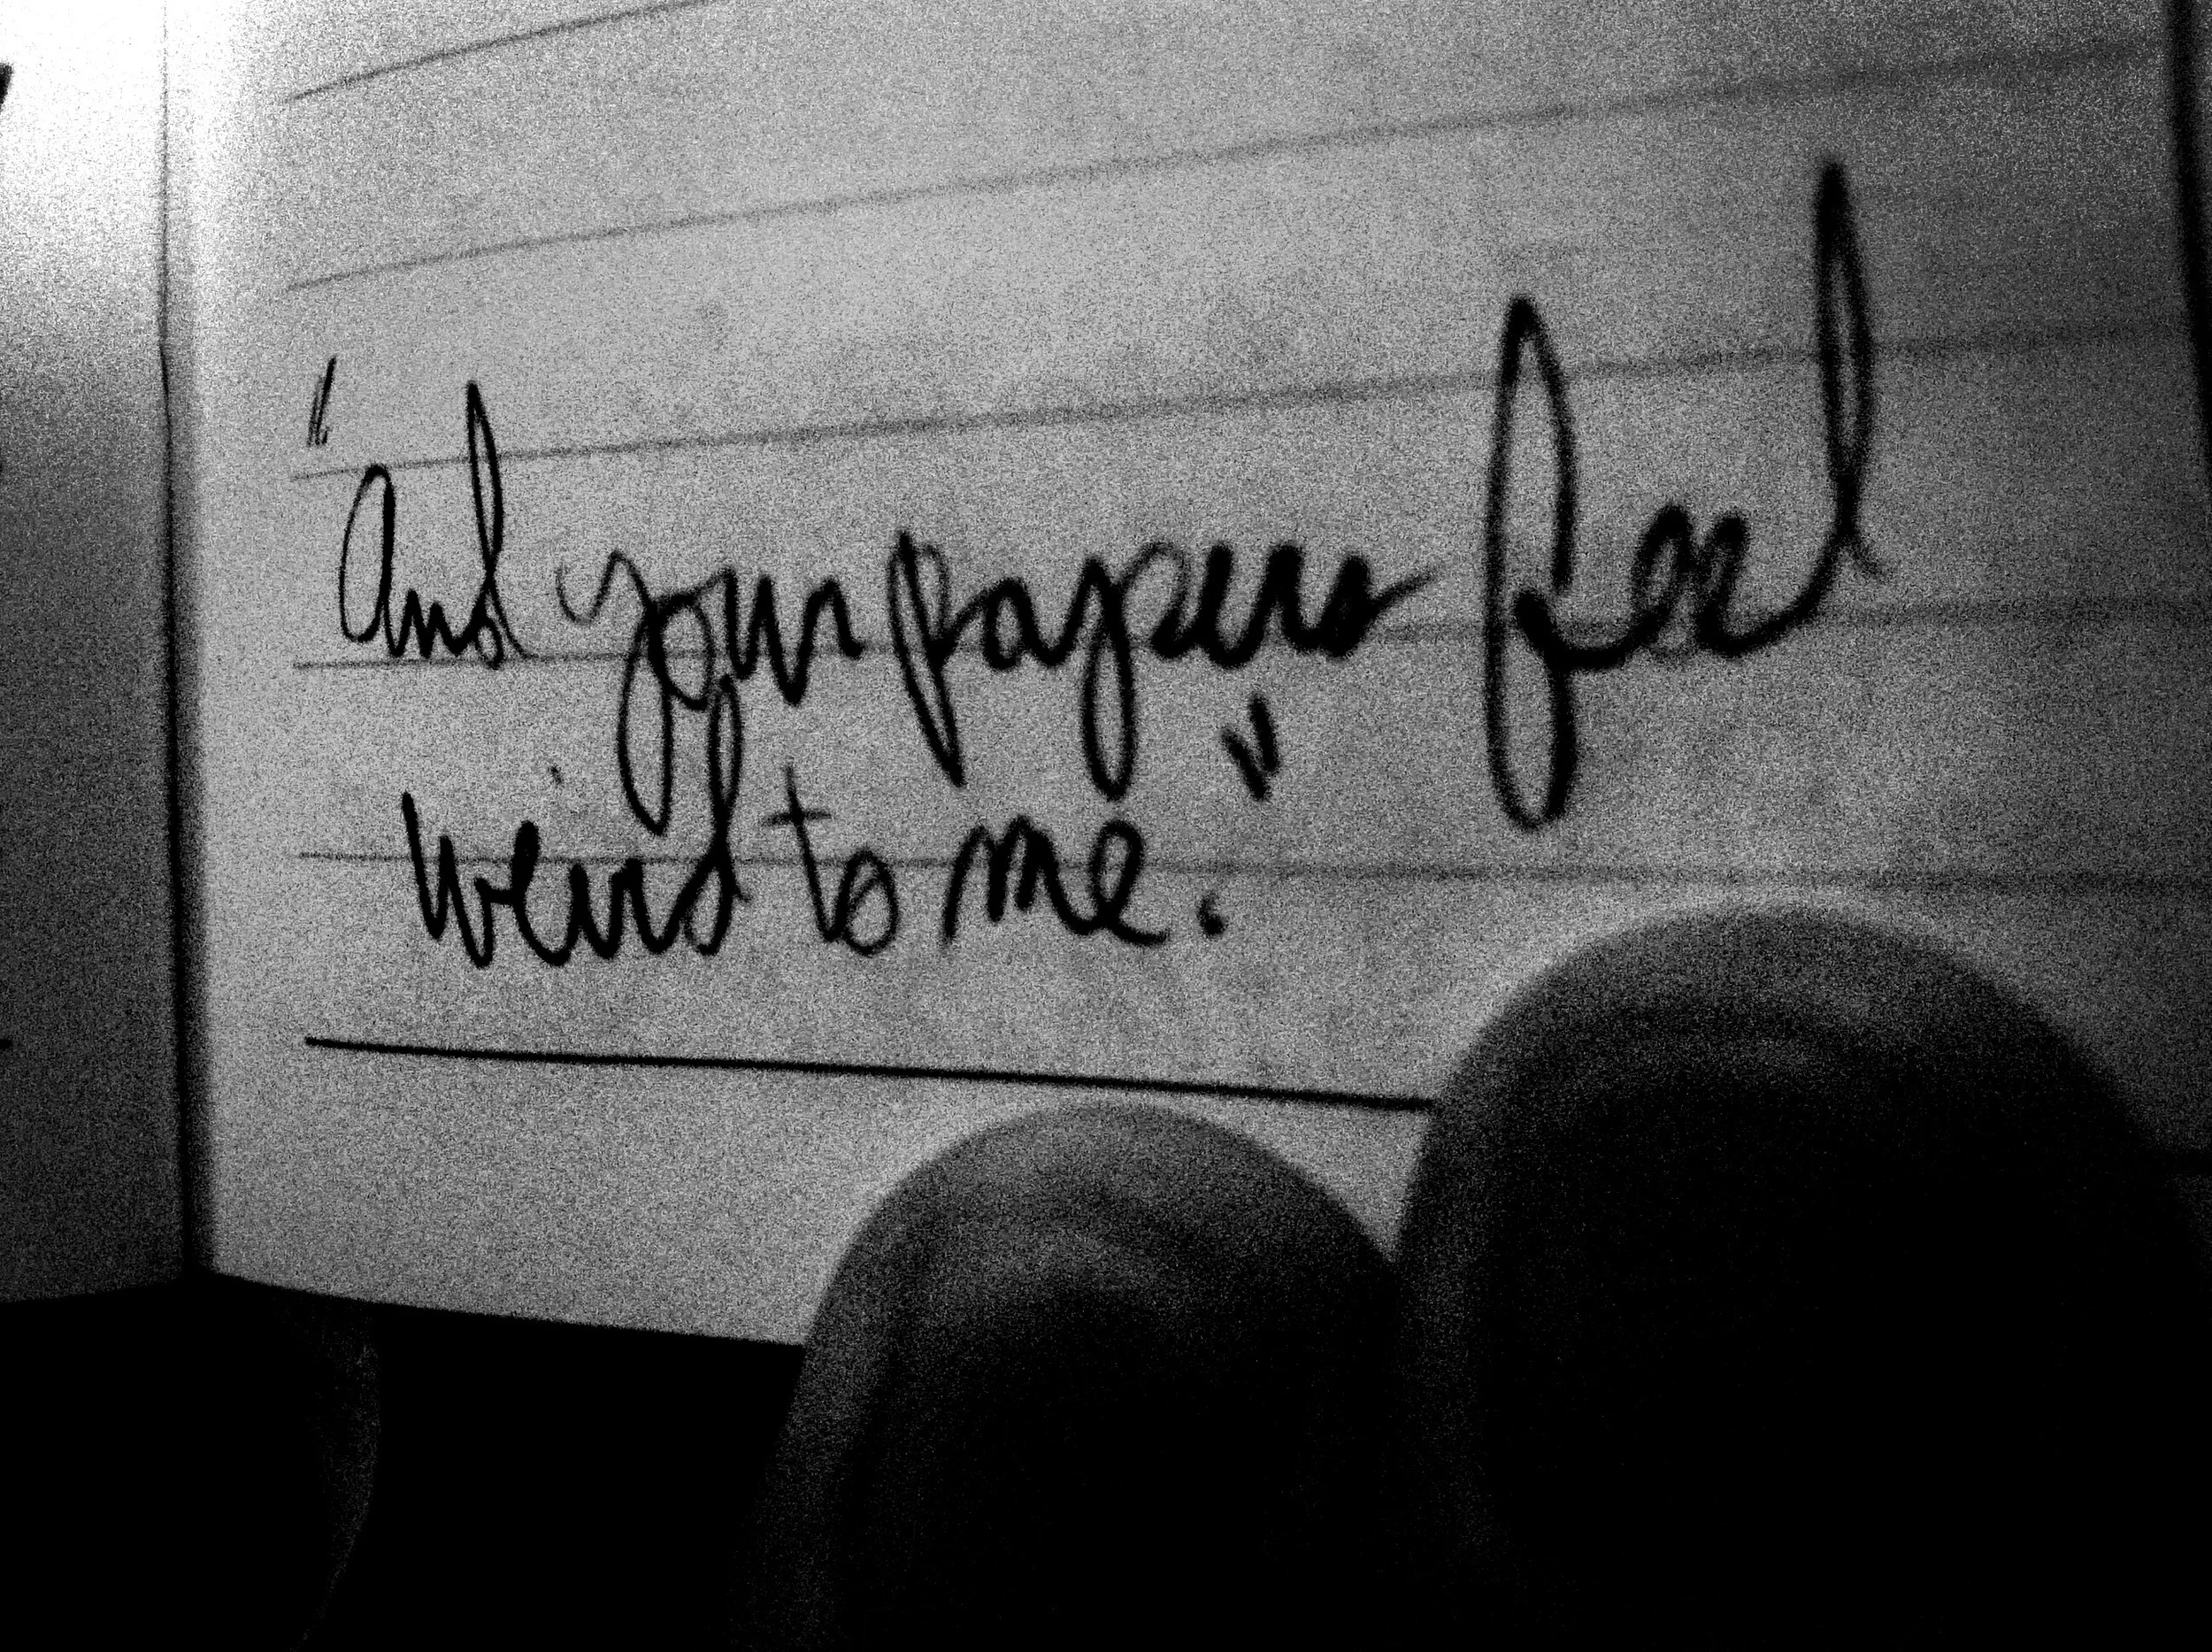 "And your papers feel
weird to me."